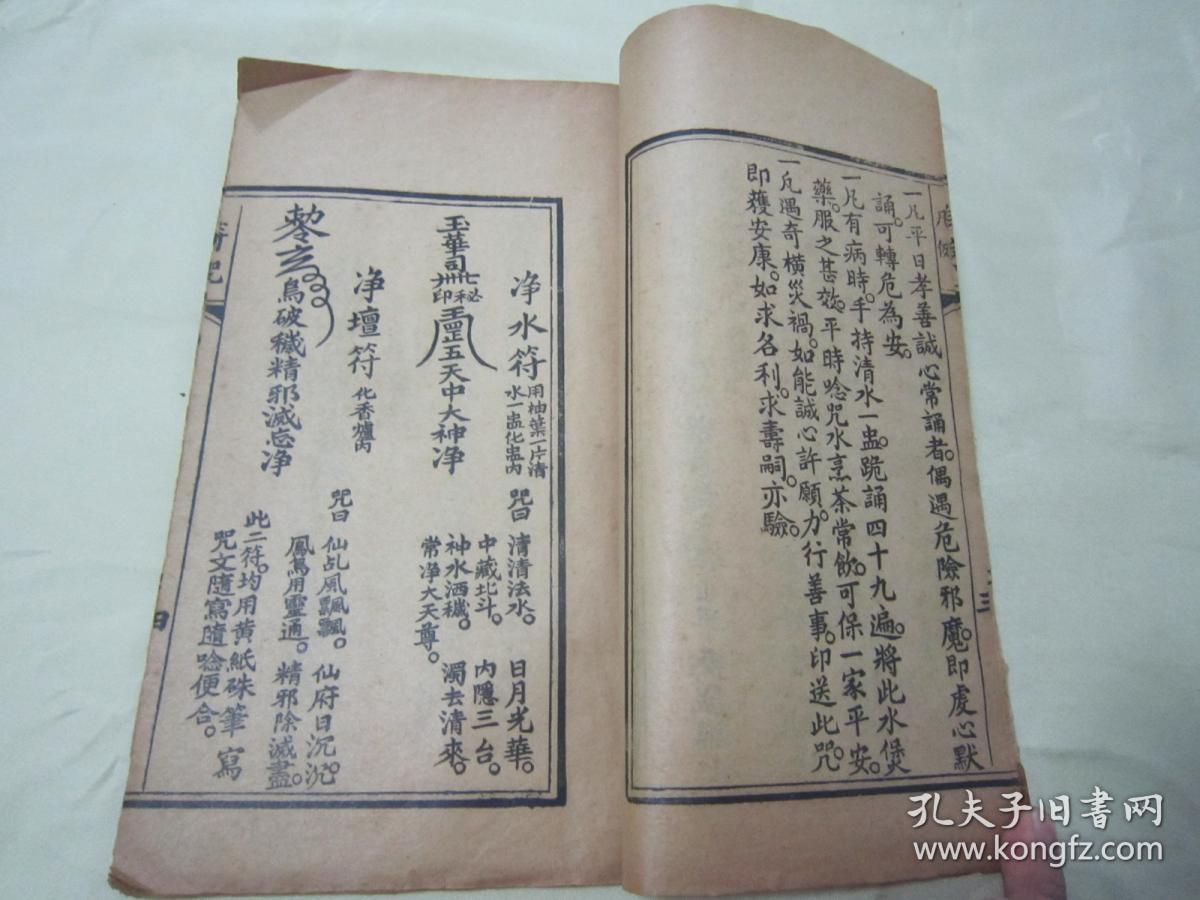 一凡平日孝善誠心常誦者。偶遇危險邪魔。即虔心默
誦。可轉危為安。
一凡有病時。手持清水一盅。跪誦四十九遍。將此水煲
藥。服之甚效。平時唸咒水烹茶常飲。可保一家平安。
一凡遇奇橫災禍。如能誠心許願。力行善事。印送此咒。
即獲安康。如求名利。求壽嗣。亦驗。
三
净水符
用柚葉一片清
水一盅化盅内
咒曰
清清法水。日月光華。
中藏北斗。內隱三台。
神水洒穢。濁去清來。
常淨大天尊。
玉華司
秘印
五天中大神净
净壇符
化香爐内
咒曰
仙乩風飄飄。仙府日沉沉。
鳳篤用靈通。精邪除滅盡。
鳥破穢精邪滅忘净
此二符。均用黄紙硃筆寫
咒文隨寫隨唸便合。
符咒
四
孔夫子旧书网
www.kongfz.com